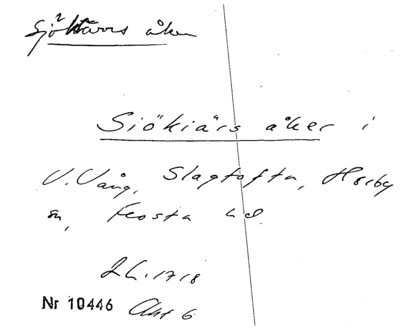 Sjökärrs åker
Siökiärs åker i
V. Vång, Slagtofta, Hörby
sn, Frosta hd.
LL. 1718
Nr 10446 Akt 6